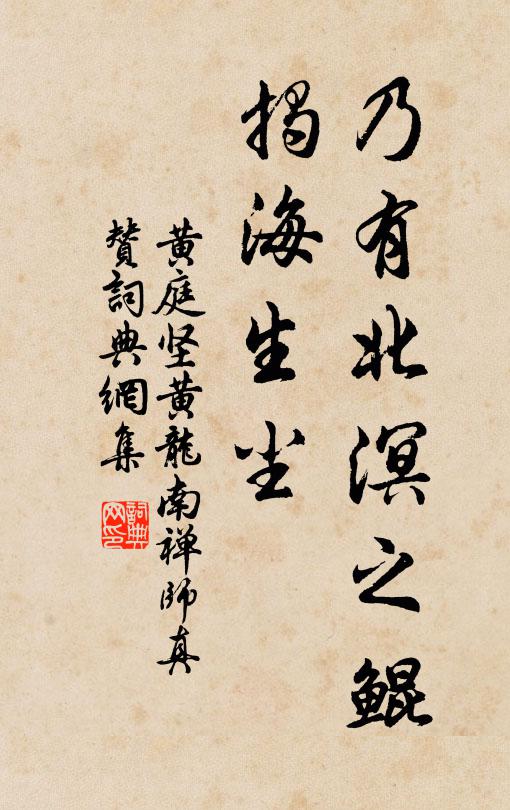 乃有北溟之鲲
揭海生尘
黄庭坚黄龍南禅師真
贊詞典網集
詞典
网印